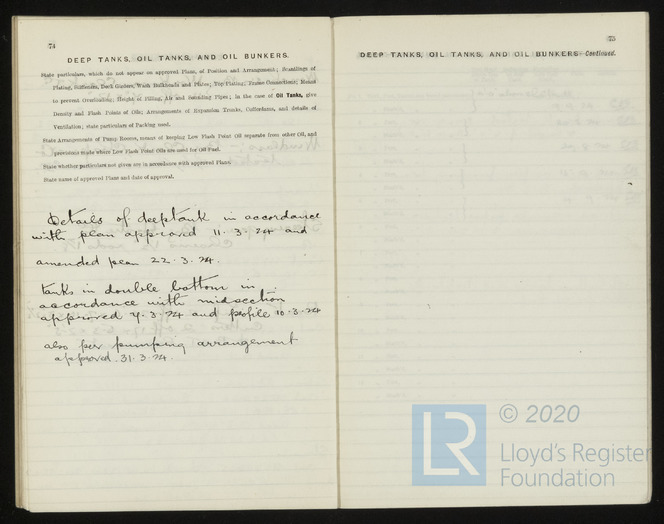 74
DEEP TANKS, OIL TANKS, AND OIL BUNKERS.
State particulars, which do not appear on approved Plans, of Position and Arrangement; Scantlings of
Plating, Stiffeners, Deck Girders, Wash Bulkheads and Plates; Top Plating; Frame Connections; Means
to prevent Overloading; Height of Filling, Air and Sounding Pipes; in the case of Oil Tanks, give
Density and Flash Points of Oils; Arrangements of Expansion Trunks, Cofferdams, and details of
Ventilation; state particulars of Packing used.
State Arrangements of Pump Rooms, means of keeping Low Flash Point Oil separate from other Oil, and
provisions made where Low Flash Point Oils are used for Oil Fuel.
State whether particulars not given are in accordance with approved Plans.
State name of approved Plans and date of approval.
Details of deeptank in accordance
with plan approved 11.3.24 and
amended plan 22.3.24.
tanks in double bottom in
accordance with midsection
approved 7.3.24 and profile 10.3.24
also per pumping arrangement
approved 31.3.24.
75
DEEP TANKS, OIL TANKS, AND OIL BUNKERS—Continued.
LR
© 2020
Lloyd's Register
Foundation